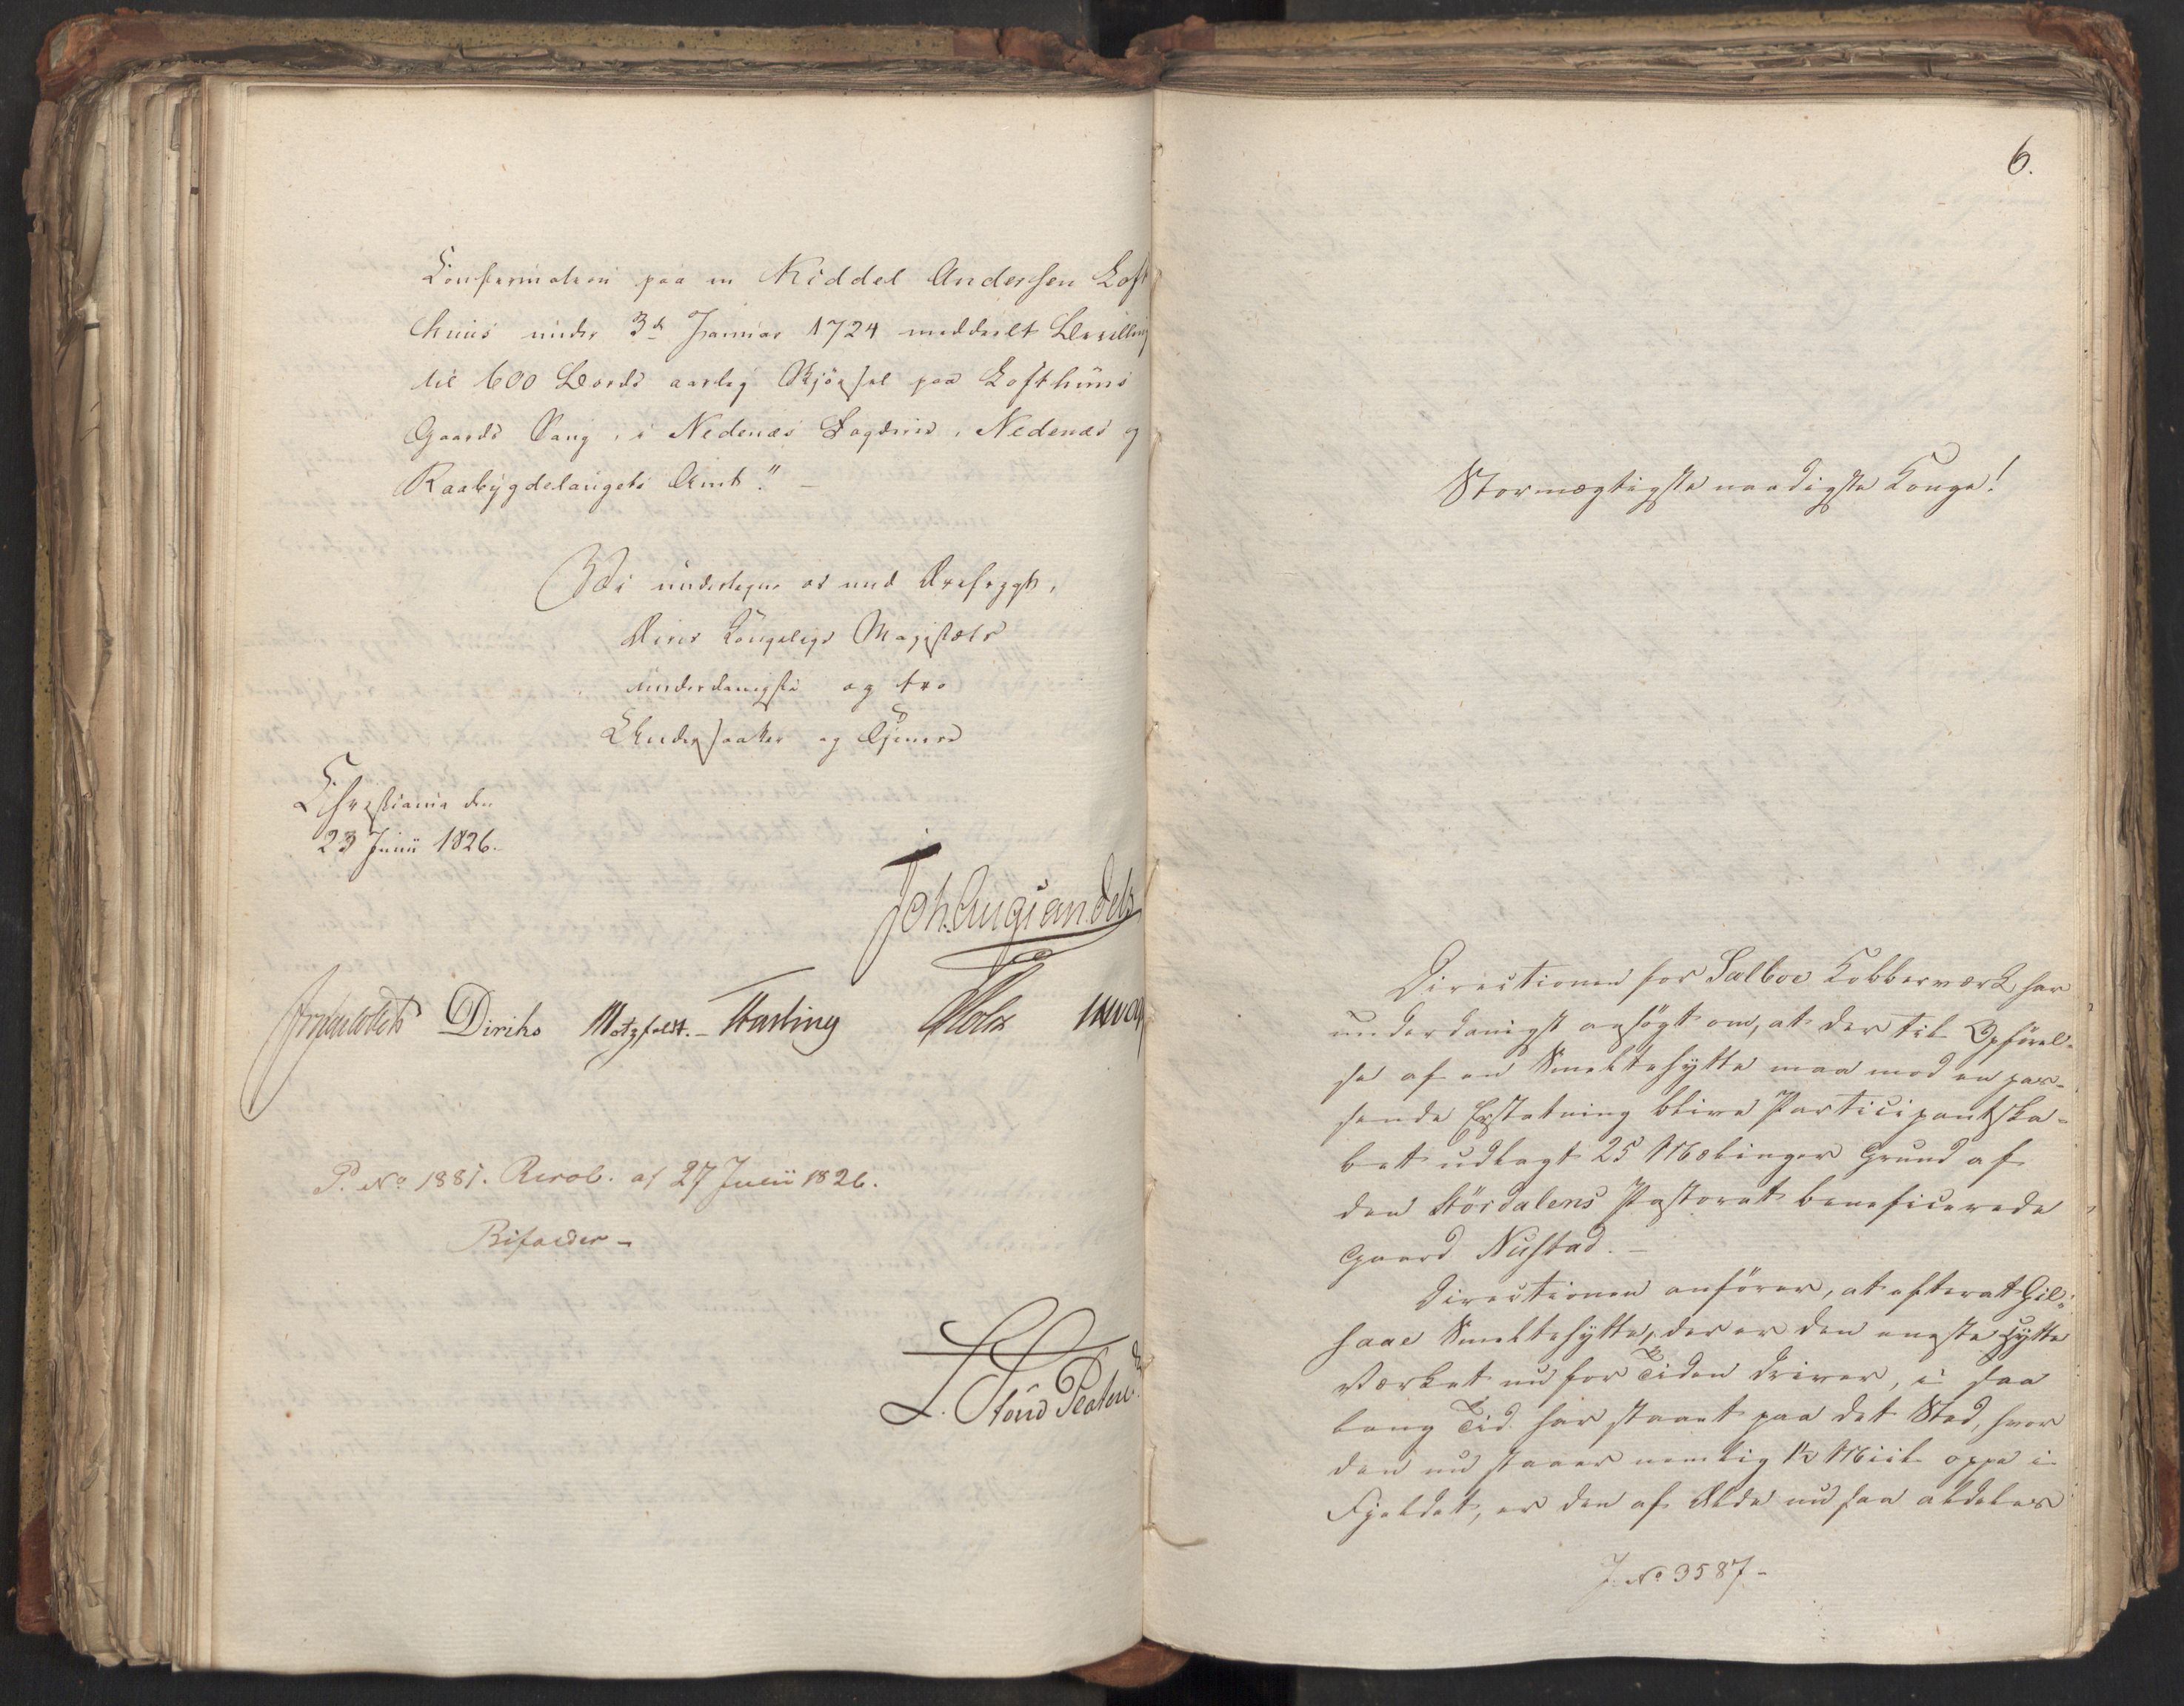 Confirmation paa en Niddel Andersen Loft
huus under 3d Januar 1724 meddeelt Bevilling
til 600 Bords aarlig Skjørsel paa Lofthuus
Gaards Saug, i Nedenæs Fogderie, Nedenæs og
Raabygdelaugets Amt." –
Vi undertegne os med Ærefrygt,
Deres Kongelige Majestæts
underdanigste og tro
Undersaatter og Tjenere
Christiania den
23 Junii 1826.
Joh. Aug. Sandels
Diriks Motzfeldt. – Fasting Holst
P. No 1881. Resol. af 27 Junii 1826.
Bifaldes –
6.
Stormægtigste naadigste Konge!
Directionen for Selboe Kobberværk har
underdanigst ansögt om, at der til Opförel-
se af en Smeltehytte maa mod en pas-
sende Erstatning blive Participantska-
bet udlagt 25 Mælinger Grund af
den Stördalens Pastorat beneficerede
Gaard Nustad. –
Directionen anförer, at efterat Gil-
saae Smeltehytte, der er den eneste Hytte
Værket nu for Tiden driver, i saa
lang Tid har staaet paa det Sted, hvor
den nu staaer nemlig 1½ Miil oppe i
Fjeldet, er den af Ælde nu saa aldeles
J. No 3587 –